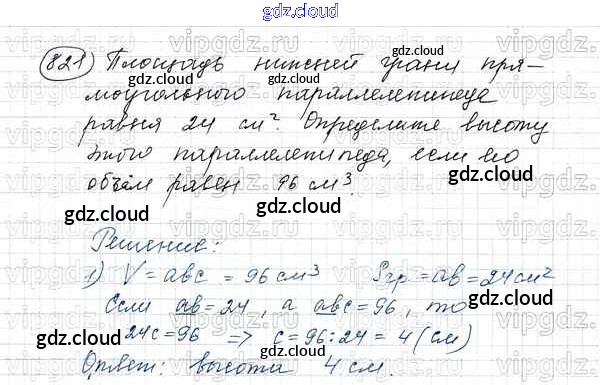 gdz.cloud
821) Площадь нижней грани пря-
моугольного параллелепипеда
равна 24 см². Определите высоту
этого параллелепипеда, если его
объём равен 96 см³.
gdz.cloud
gdz.cloud
Решение:
1) V = abc = 96 см³ Sгр. = ab = 24 см²
Если ab = 24, а abc = 96, то
24c = 96 => c = 96 : 24 = 4 (см)
Ответ: высота 4 см.